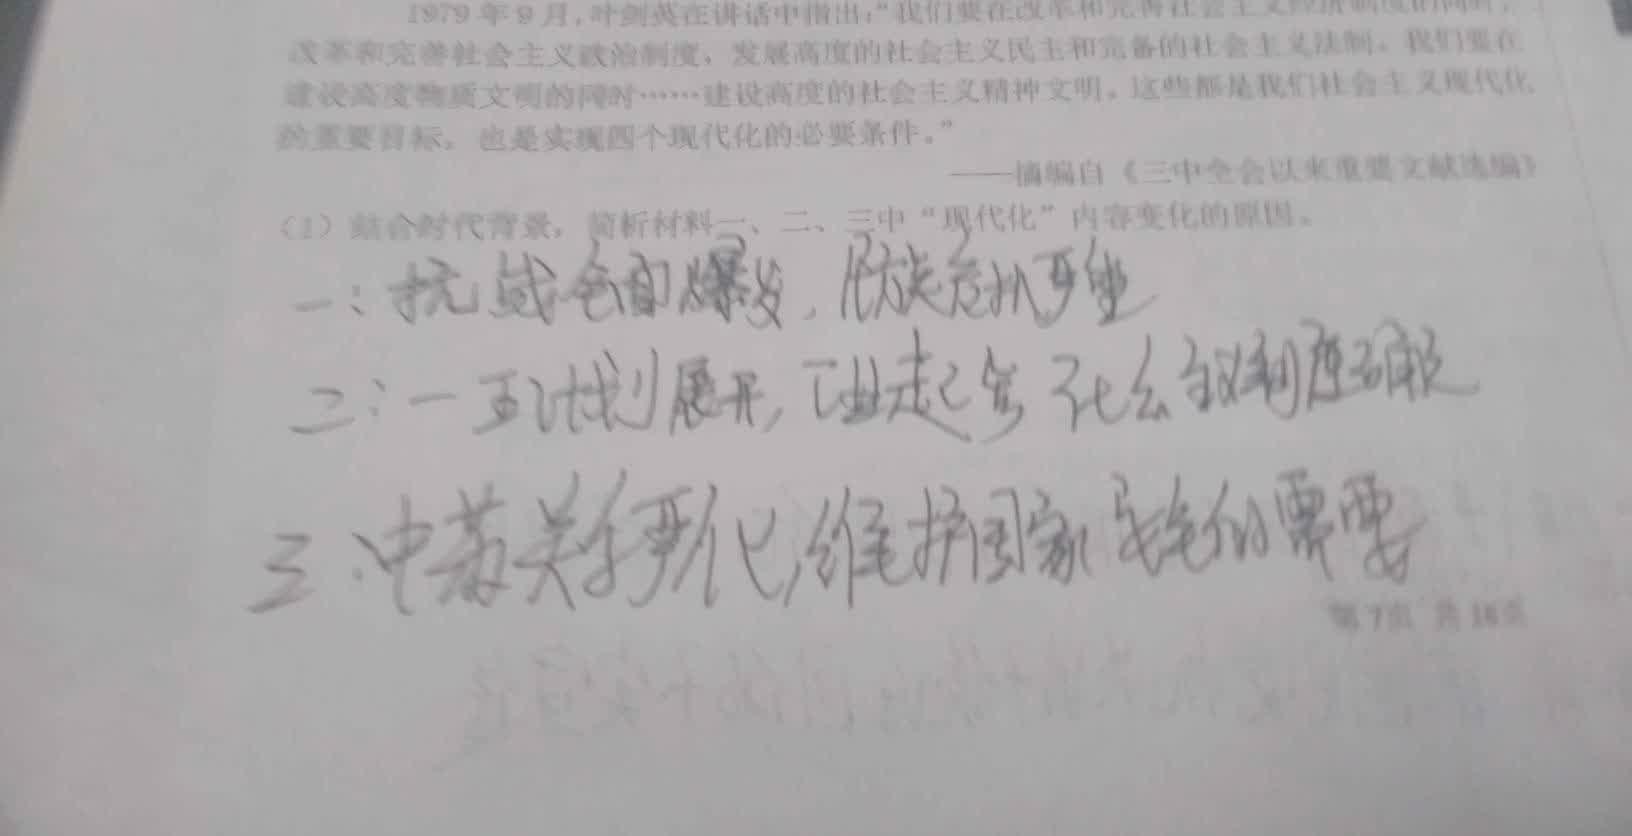 1979年9月，叶剑英在讲话中指出：“我们要在改革和完善社会主义经济制度的同时，
改革和完善社会主义政治制度，发展高度的社会主义民主和完备的社会主义法制。我们要在
建设高度物质文明的同时……建设高度的社会主义精神文明。这些都是我们社会主义现代化
的重要目标，也是实现四个现代化的必要条件。”
——摘编自《三中全会以来重要文献选编》
（1）结合时代背景，简析材料一、二、三中“现代化”内容变化的原因。
一：抗战全面爆发，民族危机严重
二：一五计划展开，工业起步 社会主义制度确立
三：中苏关系恶化，维护国家安全的需要
第7页 共16页